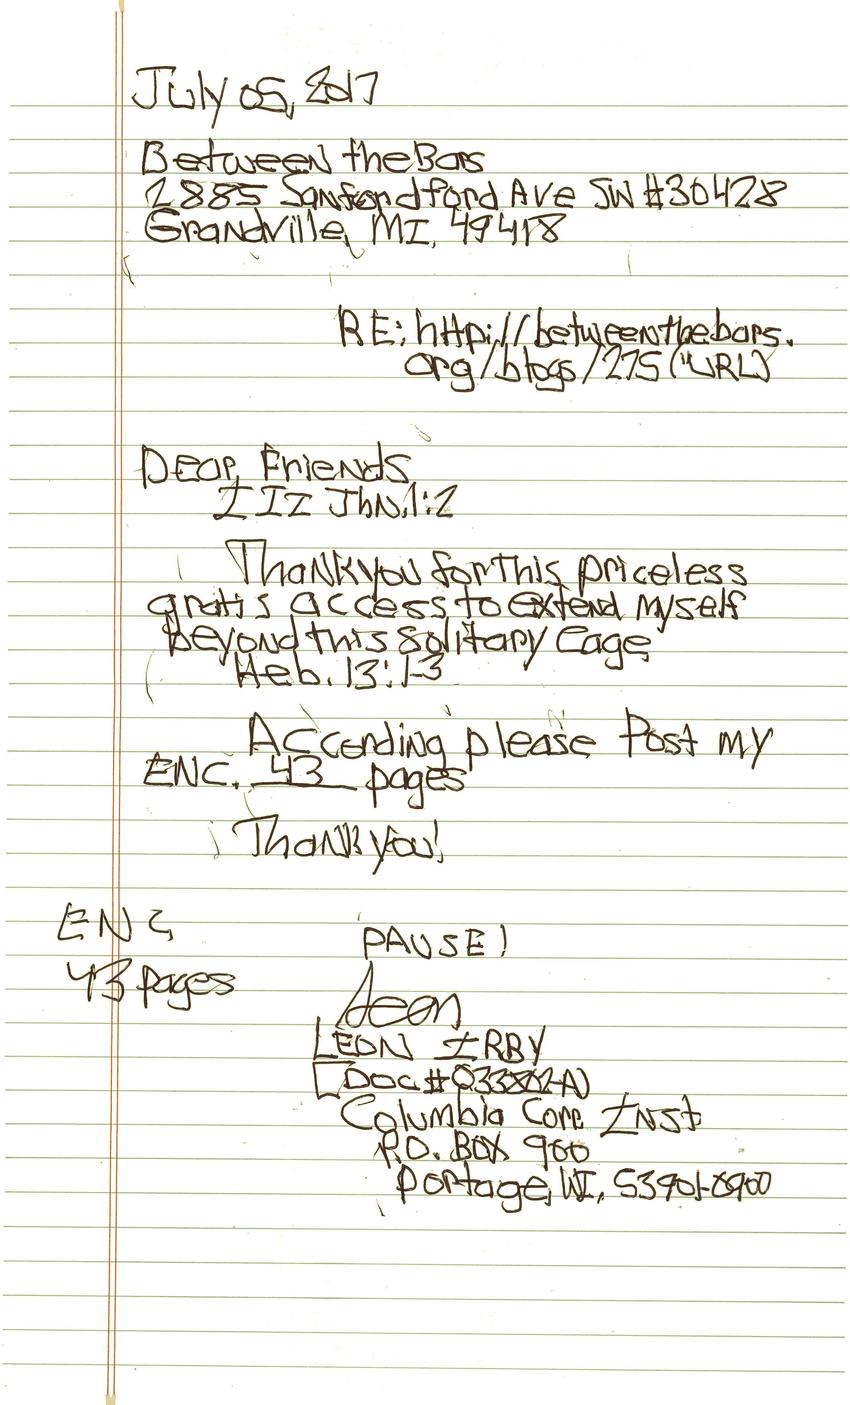 July 05, 2017
Between the Bars
2885 Sanford Ave SW #30428
Grandville, MI, 49418
RE: http://betweenthebars.
org/blogs/275 ("URL)
Dear Friends
III Jhn.1:2
Thank you for this priceless
gratis access to extend myself
beyond this solitary cage
Heb. 13:1-3
According please Post my
ENC. 43 pages
Thank you!
ENC
43 pages
PAUSE!
Leon
LEON IRBY
[DOC#
Columbia Corr Inst
P.O. BOX 900
Portage, WI, 53901-0900